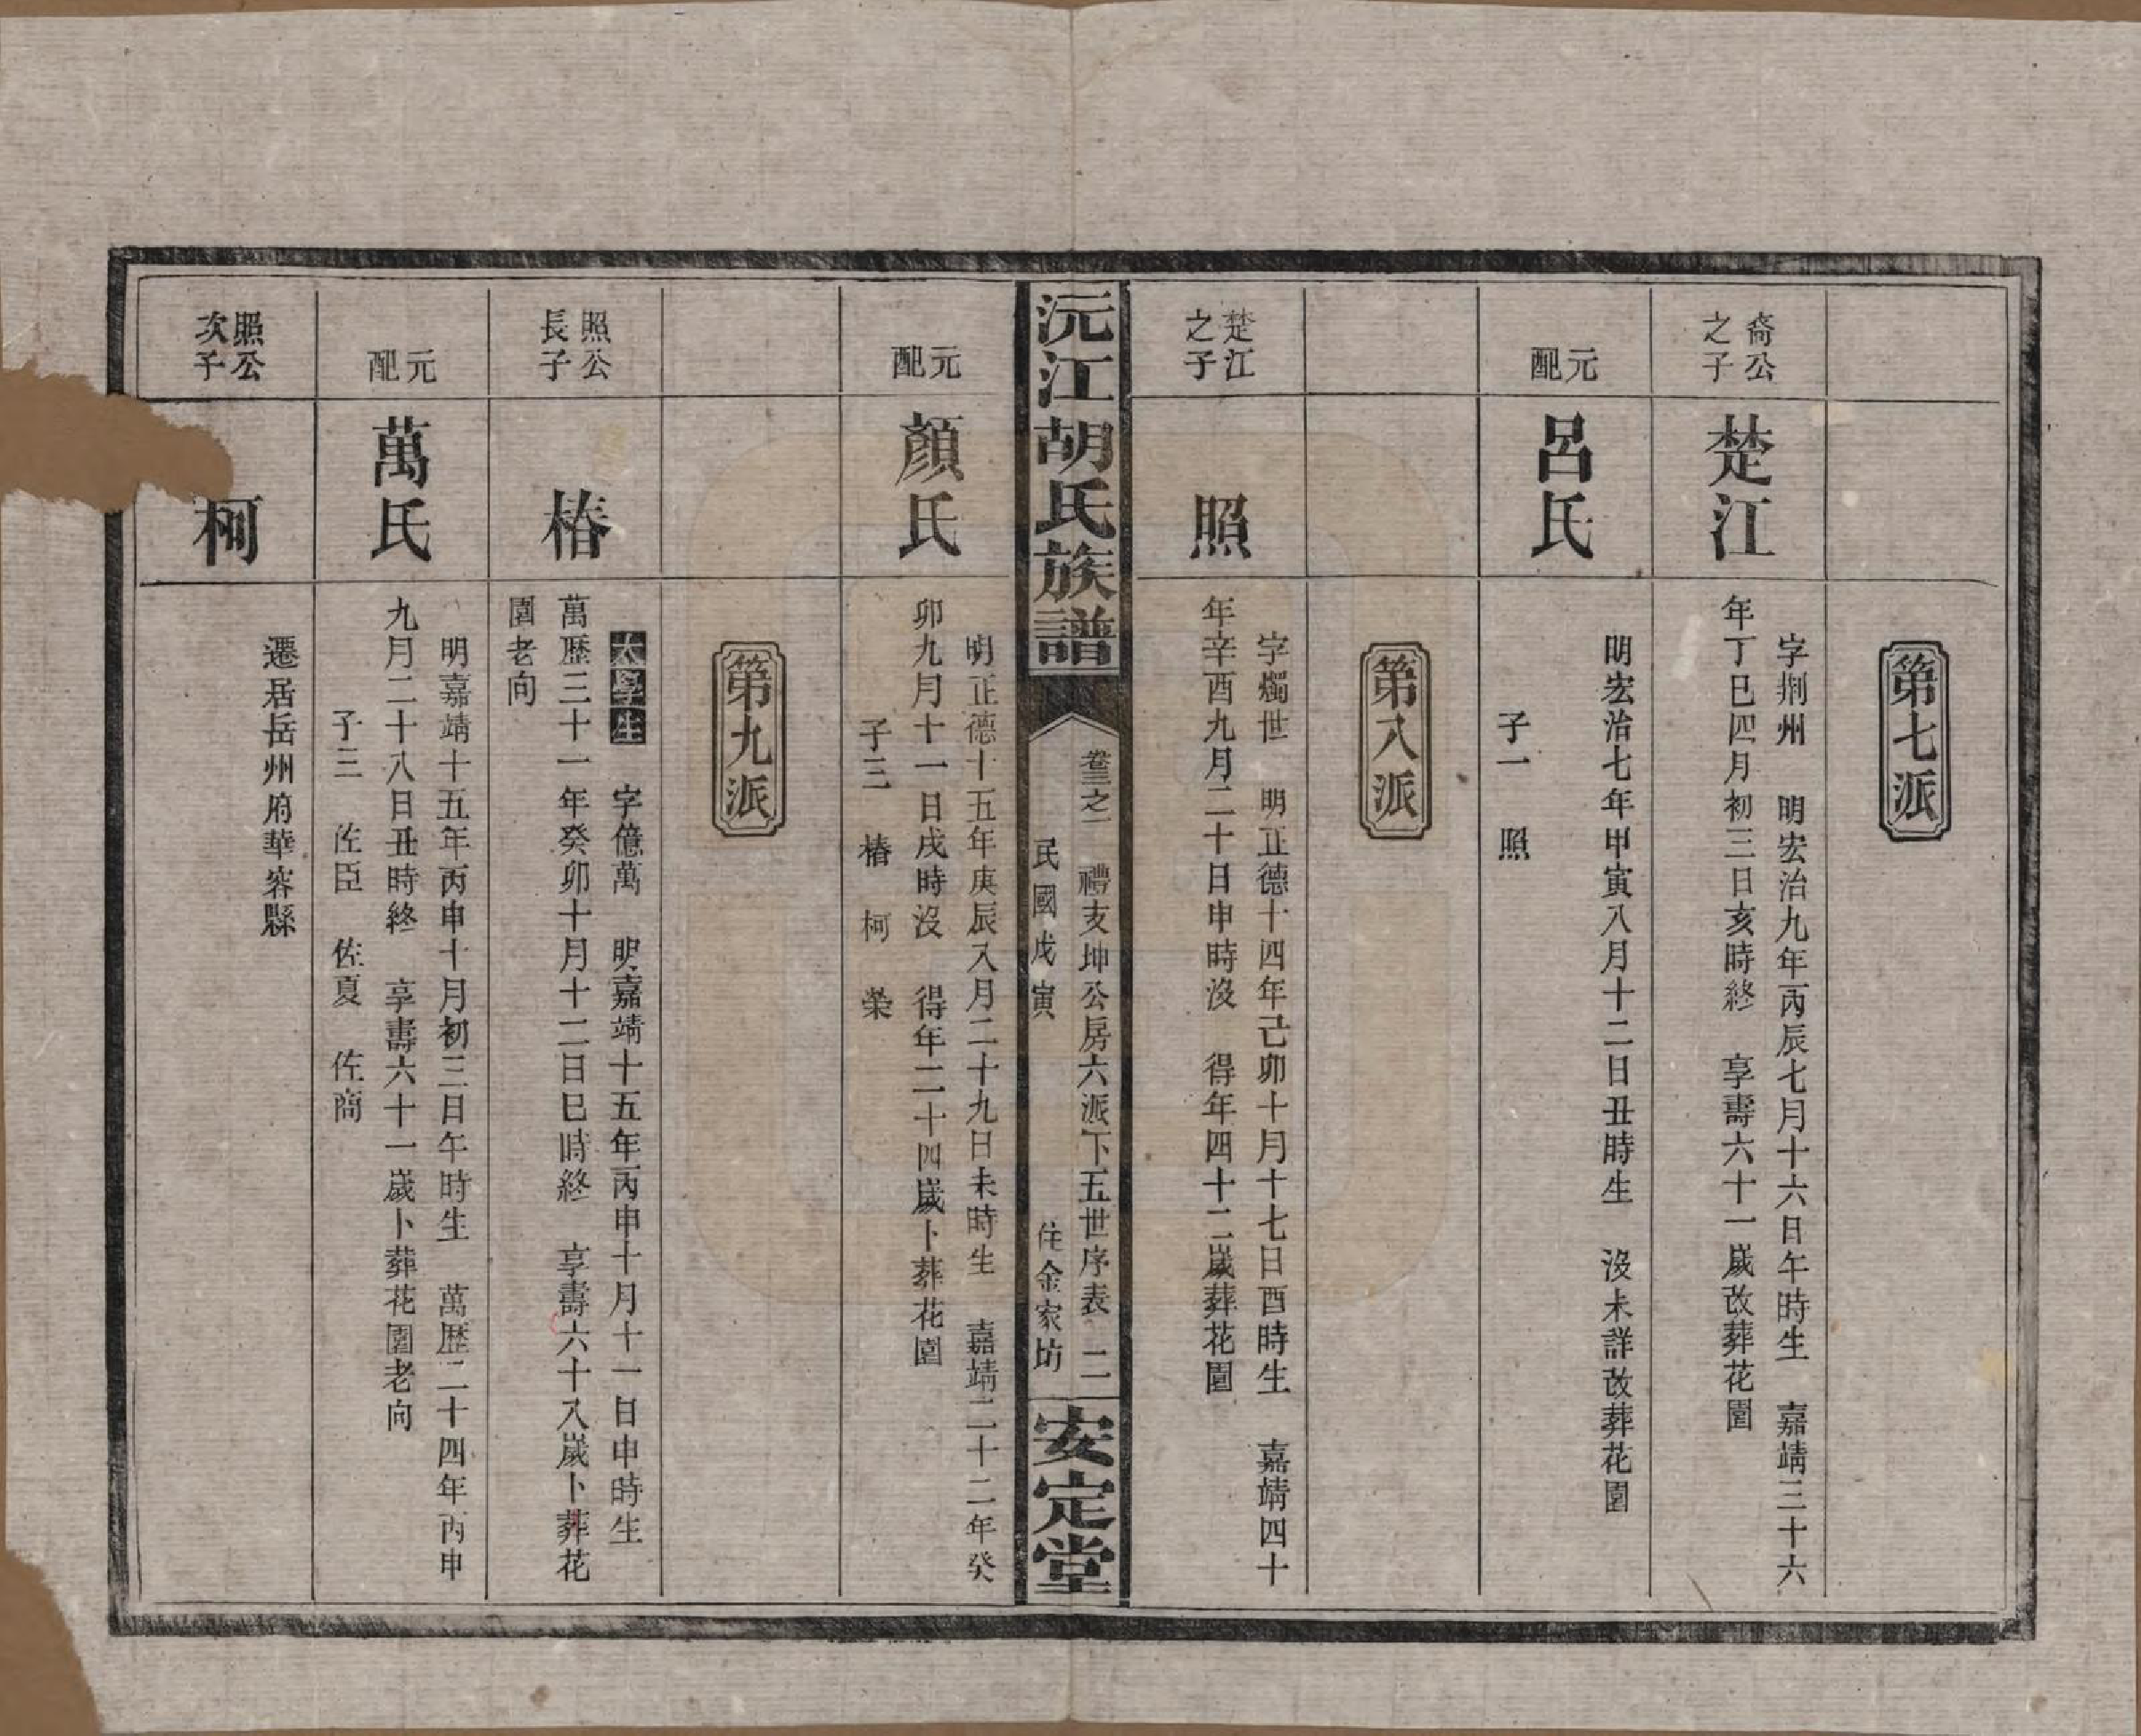 第七派
裔公
之子
楚江
字荆州　明宏治九年丙辰七月十六日午時生　嘉靖三十六
年丁巳四月初三日亥時終　享壽六十一歲改葬花園
元配
呂氏
明宏治七年甲寅八月十二日丑時生　沒未詳改葬花園
子一　照
第八派
楚江
之子
照
字燭世　明正德十四年己卯十月十七日酉時生　嘉靖四十
年辛酉九月二十日申時沒　得年四十二歲葬花園
沅江胡氏族譜
卷三之一　禮支坤公房六派下五世序表　二
民國戊寅　住金家坊
安定堂
元配
顏氏
明正德十五年庚辰八月二十九日未時生　嘉靖二十二年癸
卯九月十一日戌時沒　得年二十四歲卜葬花園
子三　椿　柯　榮
第九派
照公
長子
椿
太學生　字億萬　明嘉靖十五年丙申十月十一日申時生
萬歷三十一年癸卯十月十二日巳時終　享壽六十八歲卜葬花
園老向
元配
萬氏
明嘉靖十五年丙申十月初三日午時生　萬歷二十四年丙申
九月二十八日丑時終　享壽六十一歲卜葬花園老向
子三　佐臣　佐夏　佐商
照公
次子
柯
遷居岳州府華容縣